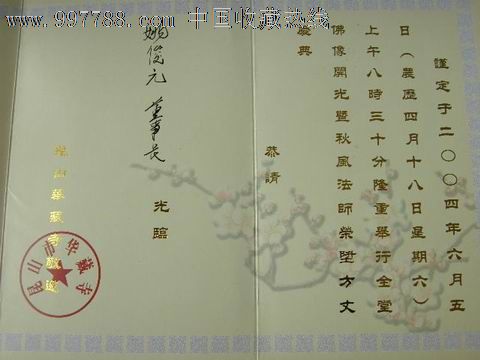 www.997788.com 中国收藏热线
謹定于二〇〇四年六月五
日(農歷四月十八日星期六)
上午八時三十分隆重舉行全堂
佛像開光暨秋風法師榮陞方丈
慶典
恭請
姚俊元 董事长 光臨
崑山華藏寺敬邀
昆山市华藏寺